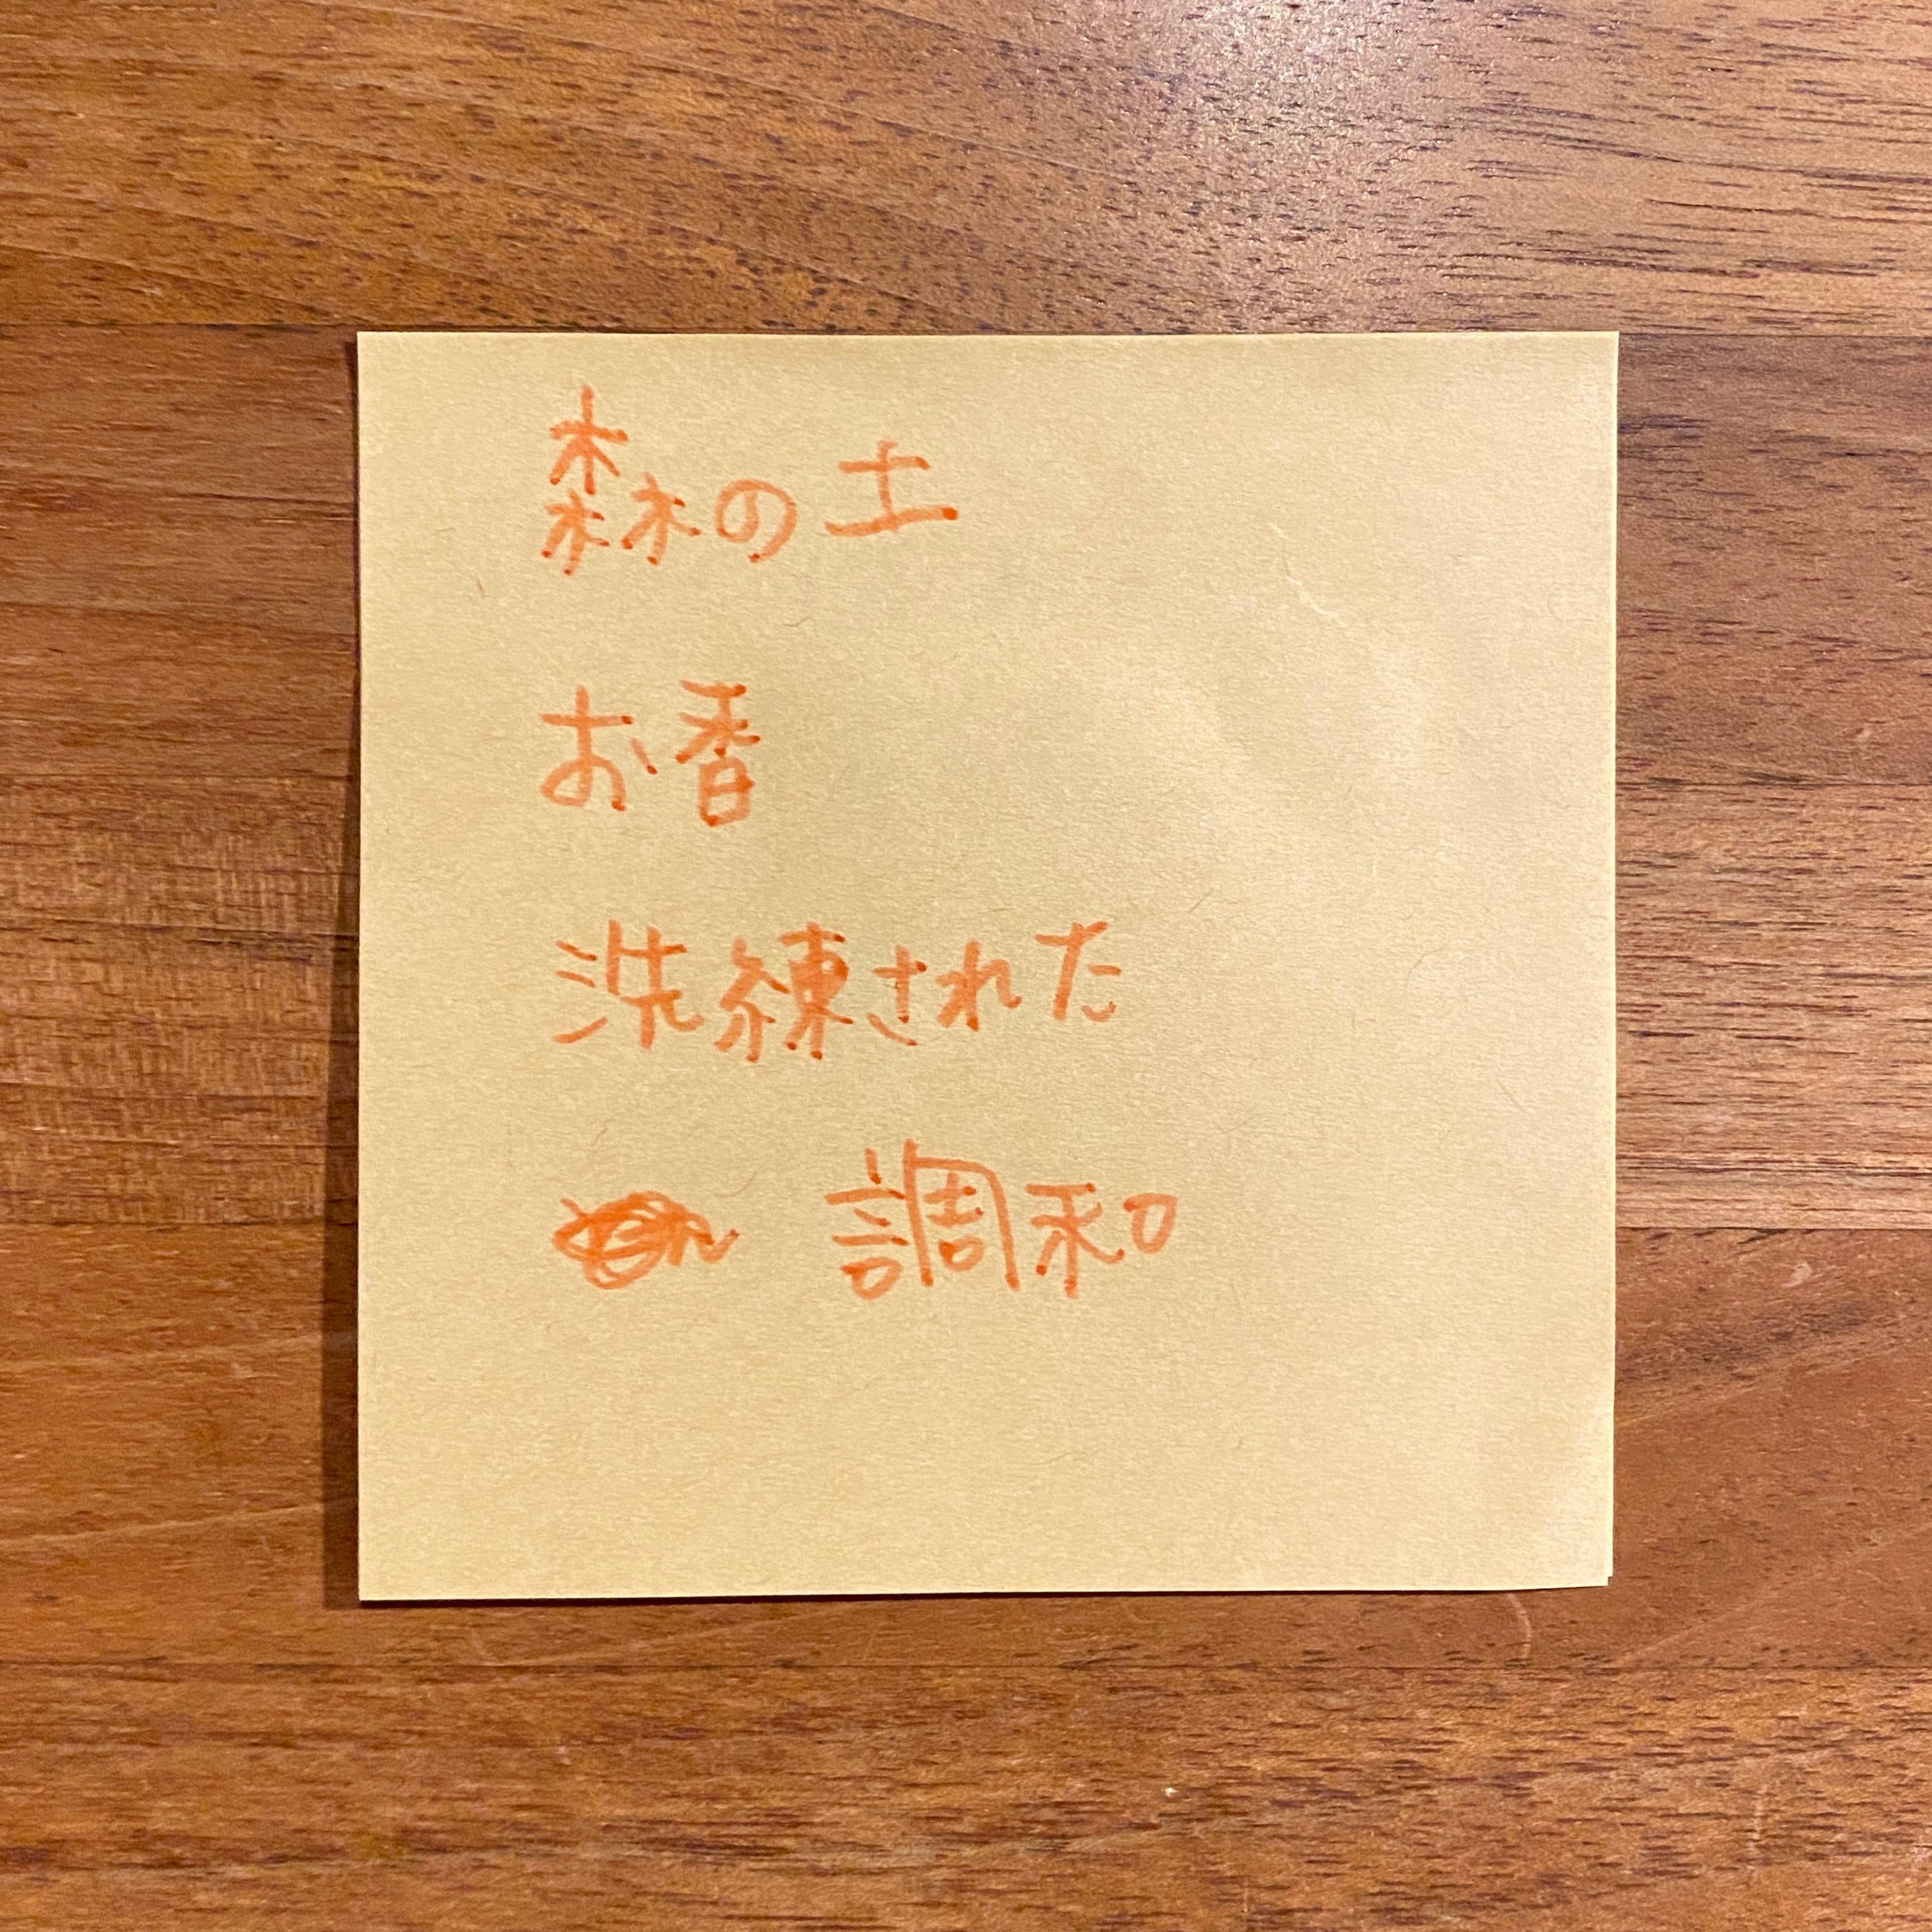 森の土
お香
洗練された
調和